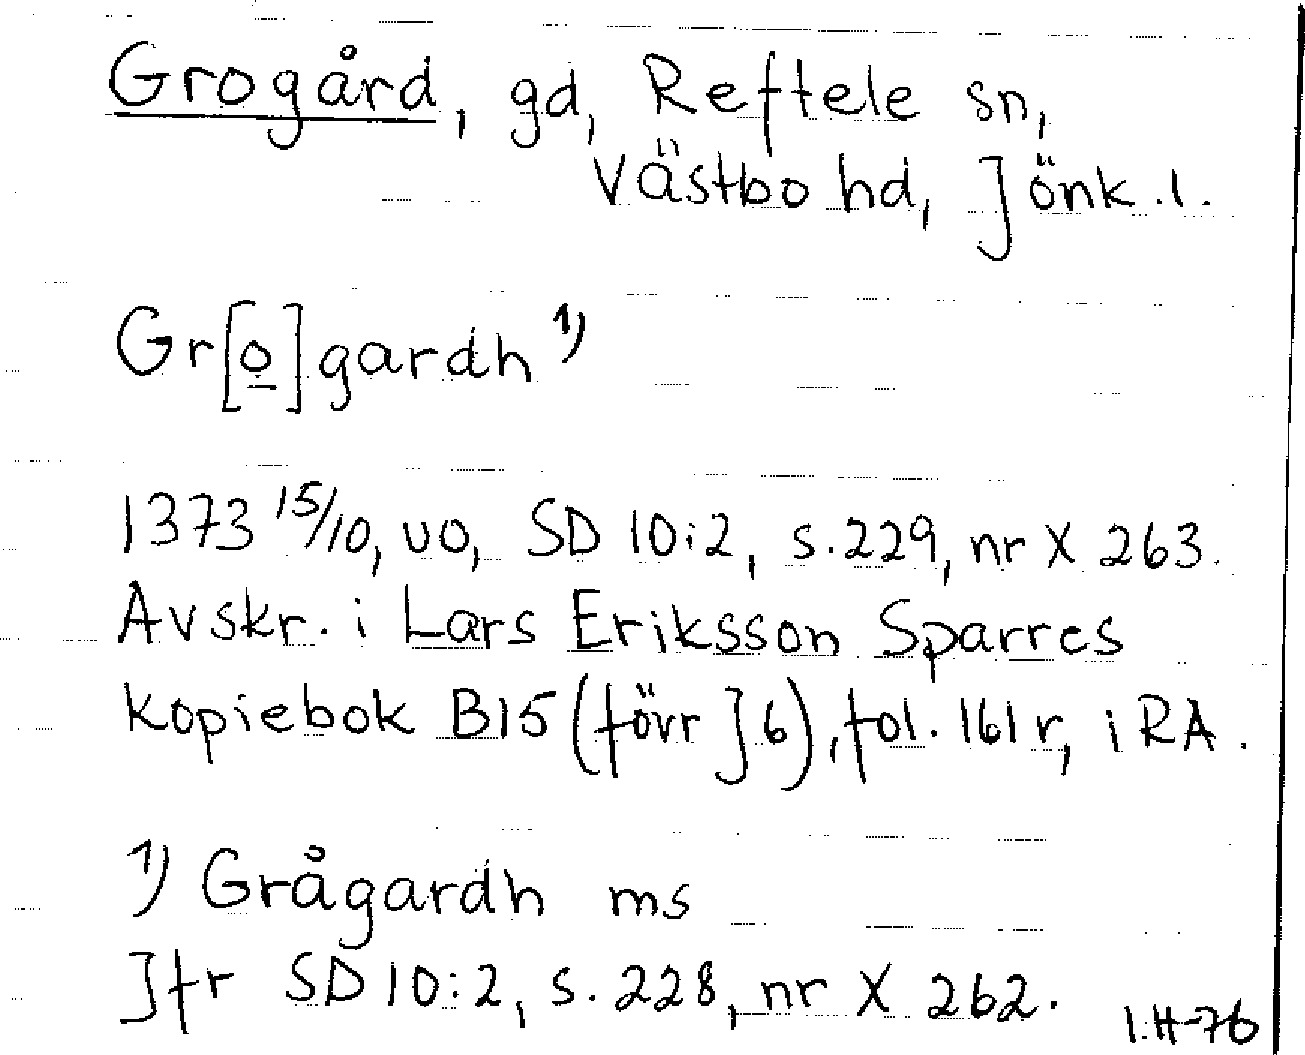 Grogård, gd, Reftele sn,
Västbo hd, Jönk.l.
Gr[o]gardh 1)
1373 15/10, uo, SD 10:2, s.229, nr X 263.
Avskr. i Lars Eriksson Sparres
kopiebok B15 (förr J6), fol. 161 r, i RA.
1) Grågardh ms
Jfr SD 10:2, s. 228, nr X 262.
I.H-76